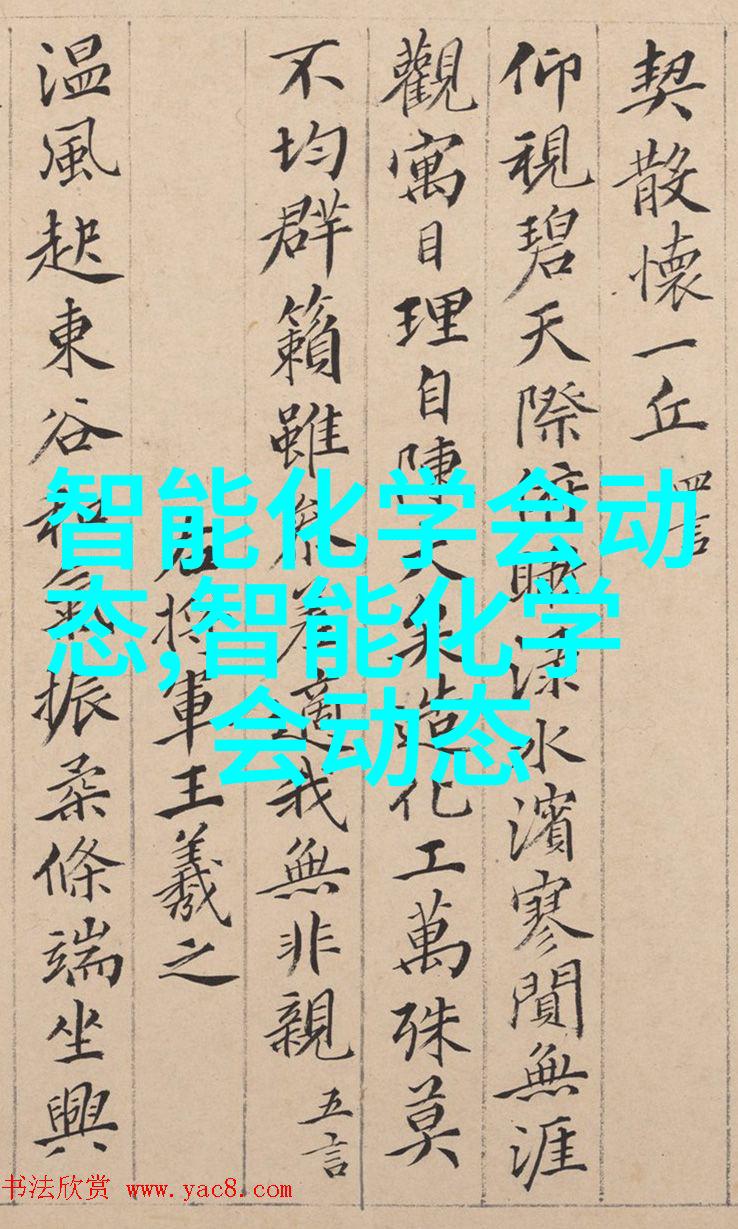 契散懷一丘 四言
仰視碧天際俯瞰淥水濱寥閴無涯
觀寓目理自陳大矣造化工萬殊莫
不均群籟雖參差適我無非親 五言
右將軍王羲之
温風起東谷和氣振柔條端坐興
智能化学会动
态,智能化学
会动态
书法欣赏 www.yac8.com